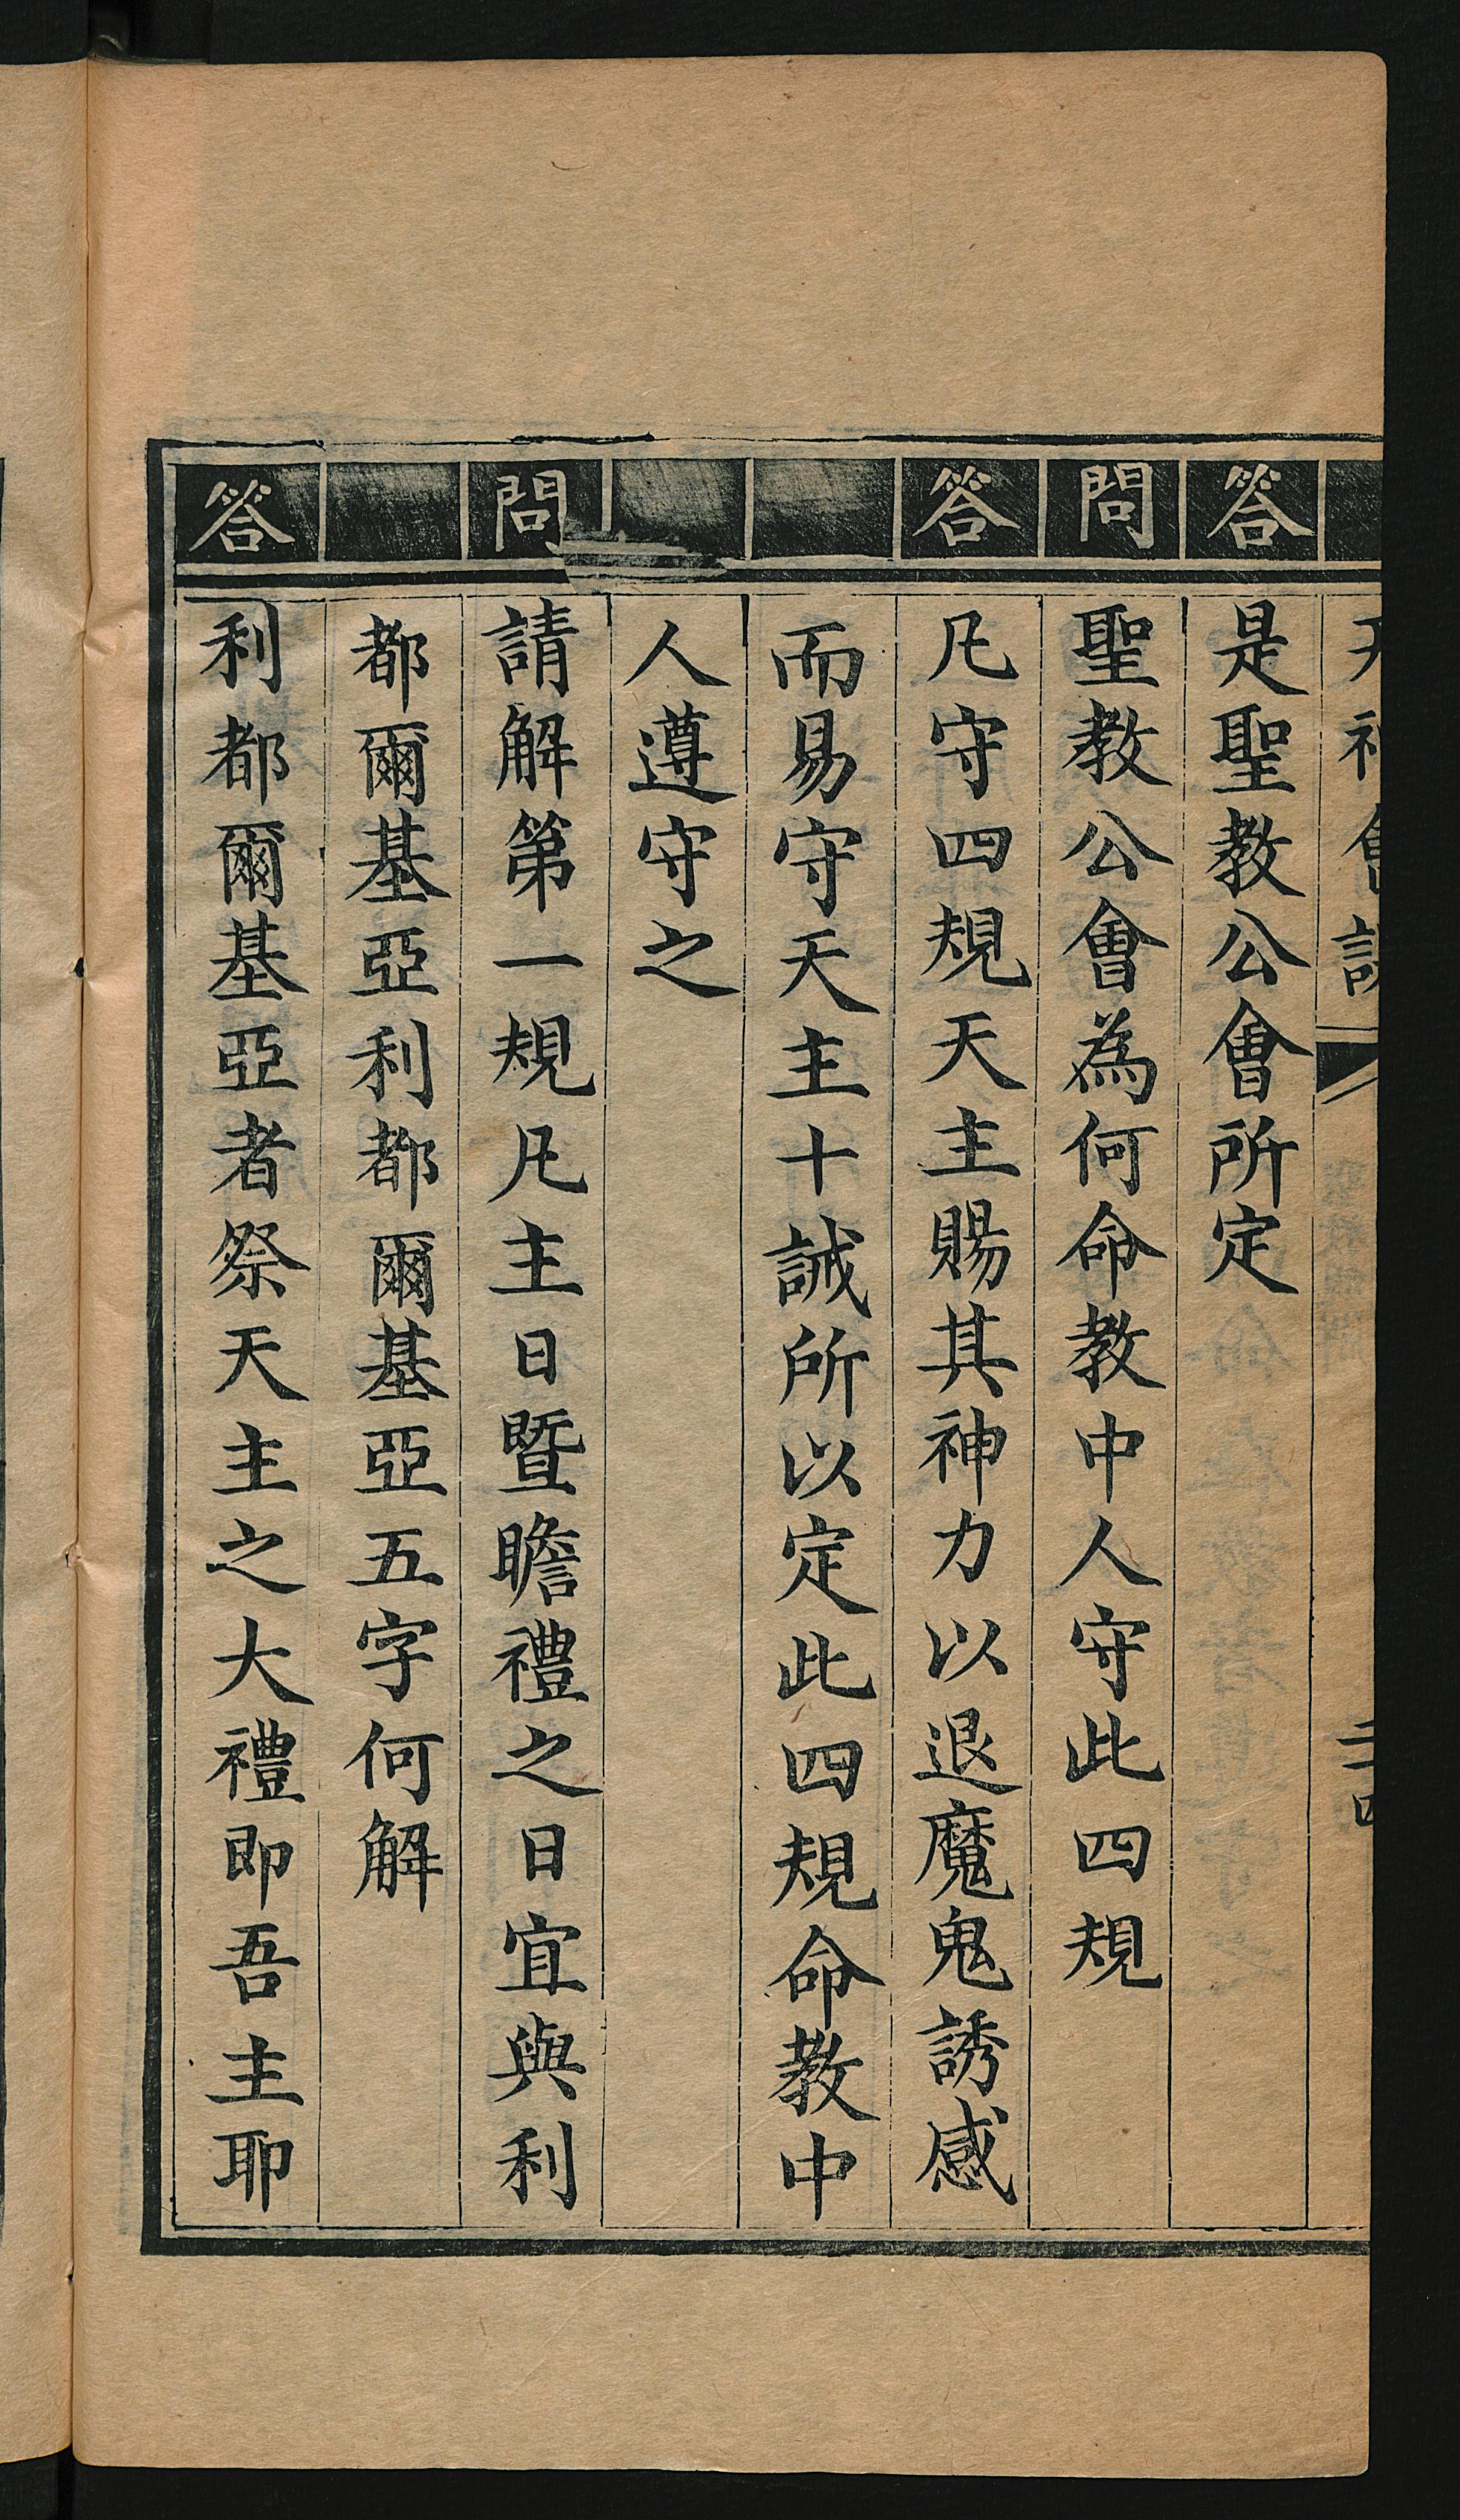 答 是聖教公會所定
問 聖教公會為何命教中人守此四規
答 凡守四規天主賜其神力以退魔鬼誘感
而易守天主十誡所以定此四規命教中
人遵守之
問 請解第一規凡主日暨瞻禮之日宜與利
都爾基亞利都爾基亞五字何解
答 利都爾基亞者祭天主之大禮即吾主耶